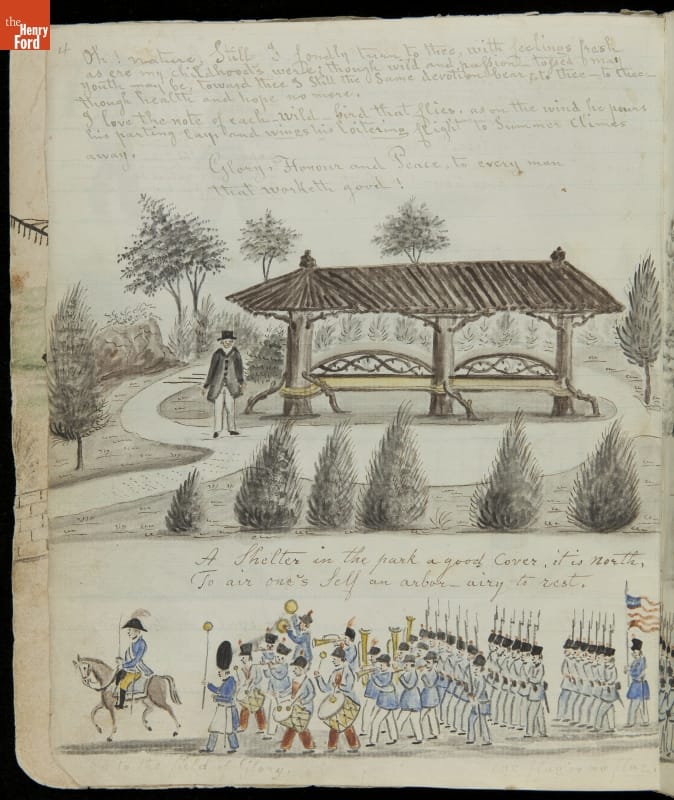 the Henry Ford
Oh! nature, Still I fondly turn to thee, with feelings fresh
as ere my childhood's were; though wild and passion tossed may
Youth may be, toward thee I Still the Same devotion bear, to thee to thee
though health and hope no more.
I love the note of each wild bird that flies, as on the wind he pours
his parting lay, and wings his loitering flight to Summer Climes
away.
Glory, Honour and Peace, to every man
that worketh good!
A Shelter in the park a good Cover, it is North,
To air one's Self an arbor airy to rest.
to the field of Glory.